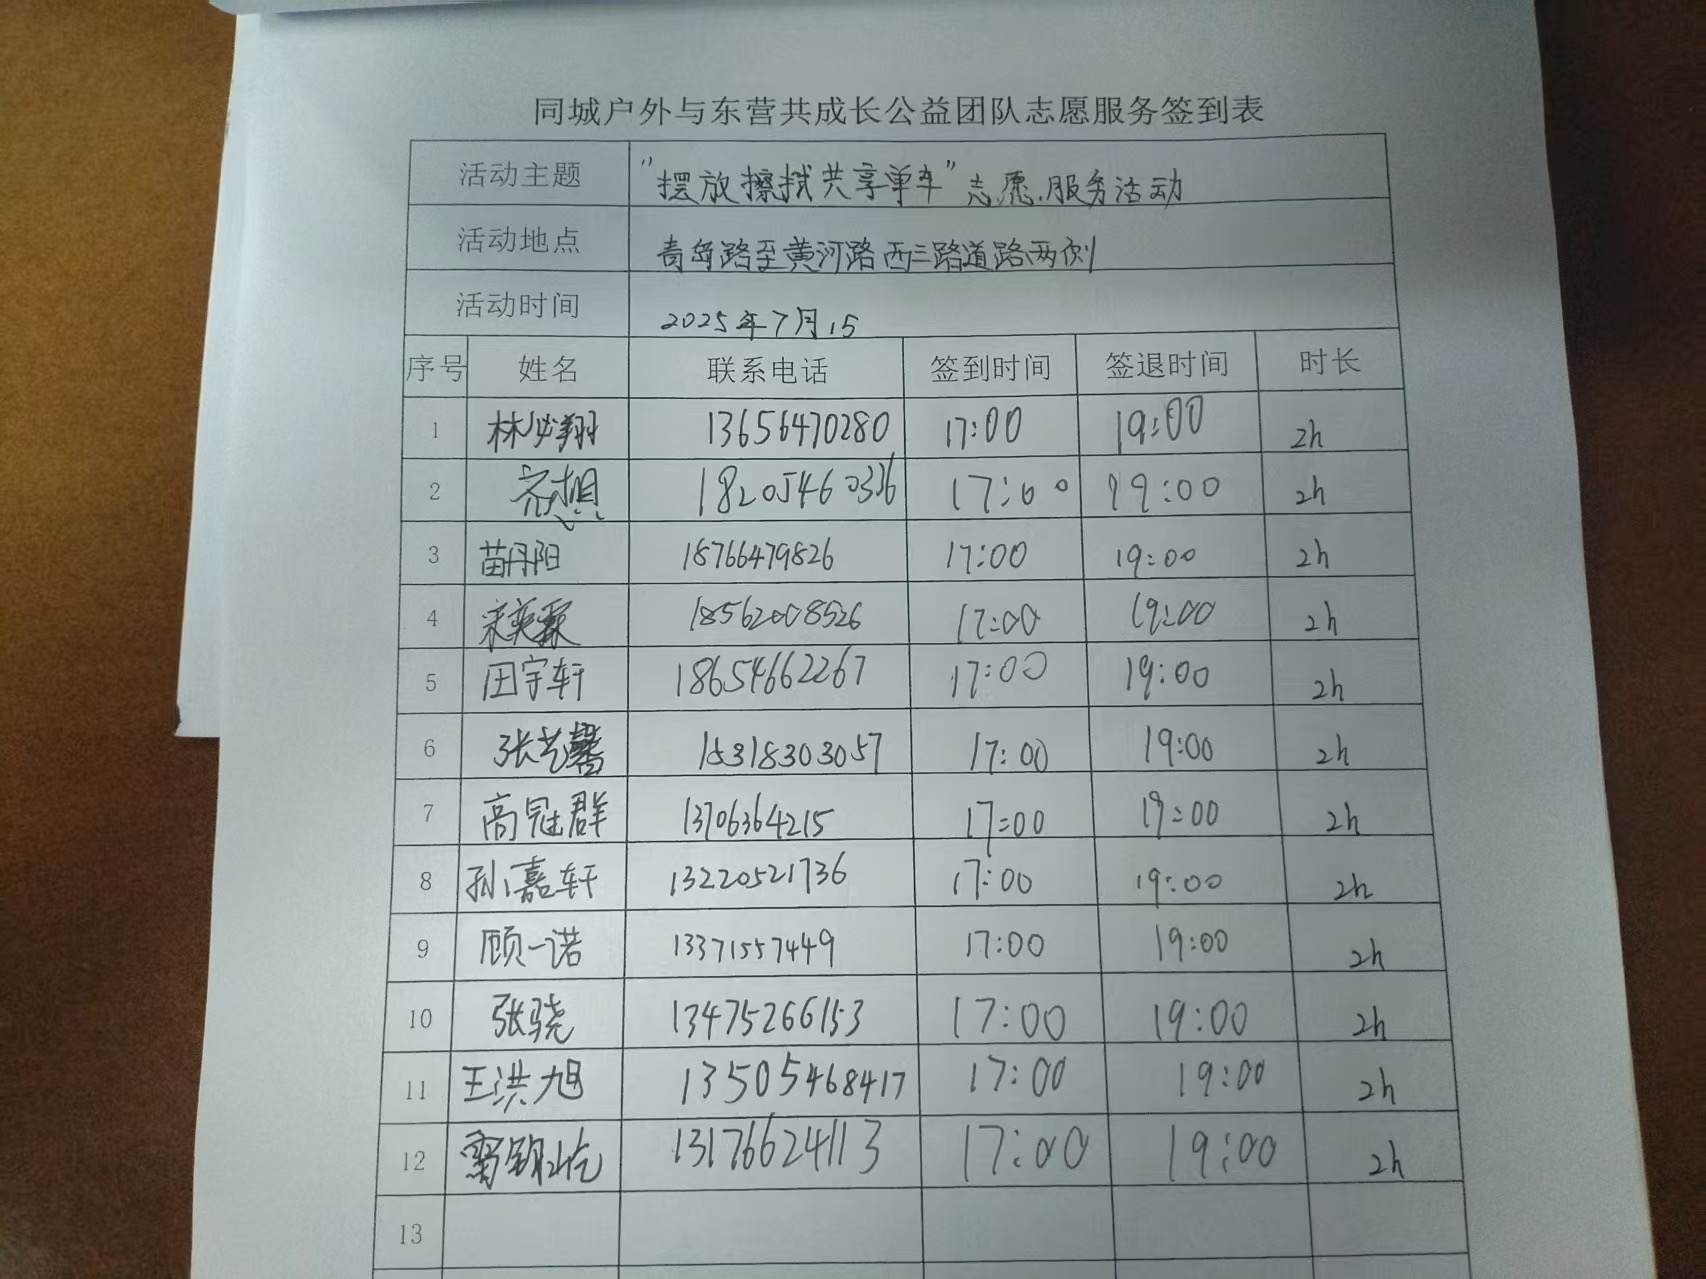 同城户外与东营共成长公益团队志愿服务签到表
活动主题 "摆放擦拭共享单车"志愿服务活动
活动地点 青岛路至黄河路西三路道路两侧
活动时间 2025年7月15
序号 姓名 联系电话 签到时间 签退时间 时长
1 林必翔 13656470280 17:00 19:00 2h
2 齐想 18205460336 17:00 19:00 2h
3 苗丹阳 18766479826 17:00 19:00 2h
4 宋奕霖 18562008526 17:00 19:00 2h
5 田宇轩 18654662267 17:00 19:00 2h
6 张艺馨 15318303057 17:00 19:00 2h
7 高冠群 13706364215 17:00 19:00 2h
8 孙嘉轩 13220521736 17:00 19:00 2h
9 顾一诺 13371557449 17:00 19:00 2h
10 张骁 13475266153 17:00 19:00 2h
11 王洪旭 13505468417 17:00 19:00 2h
12 13176624113 17:00 19:00 2h
13